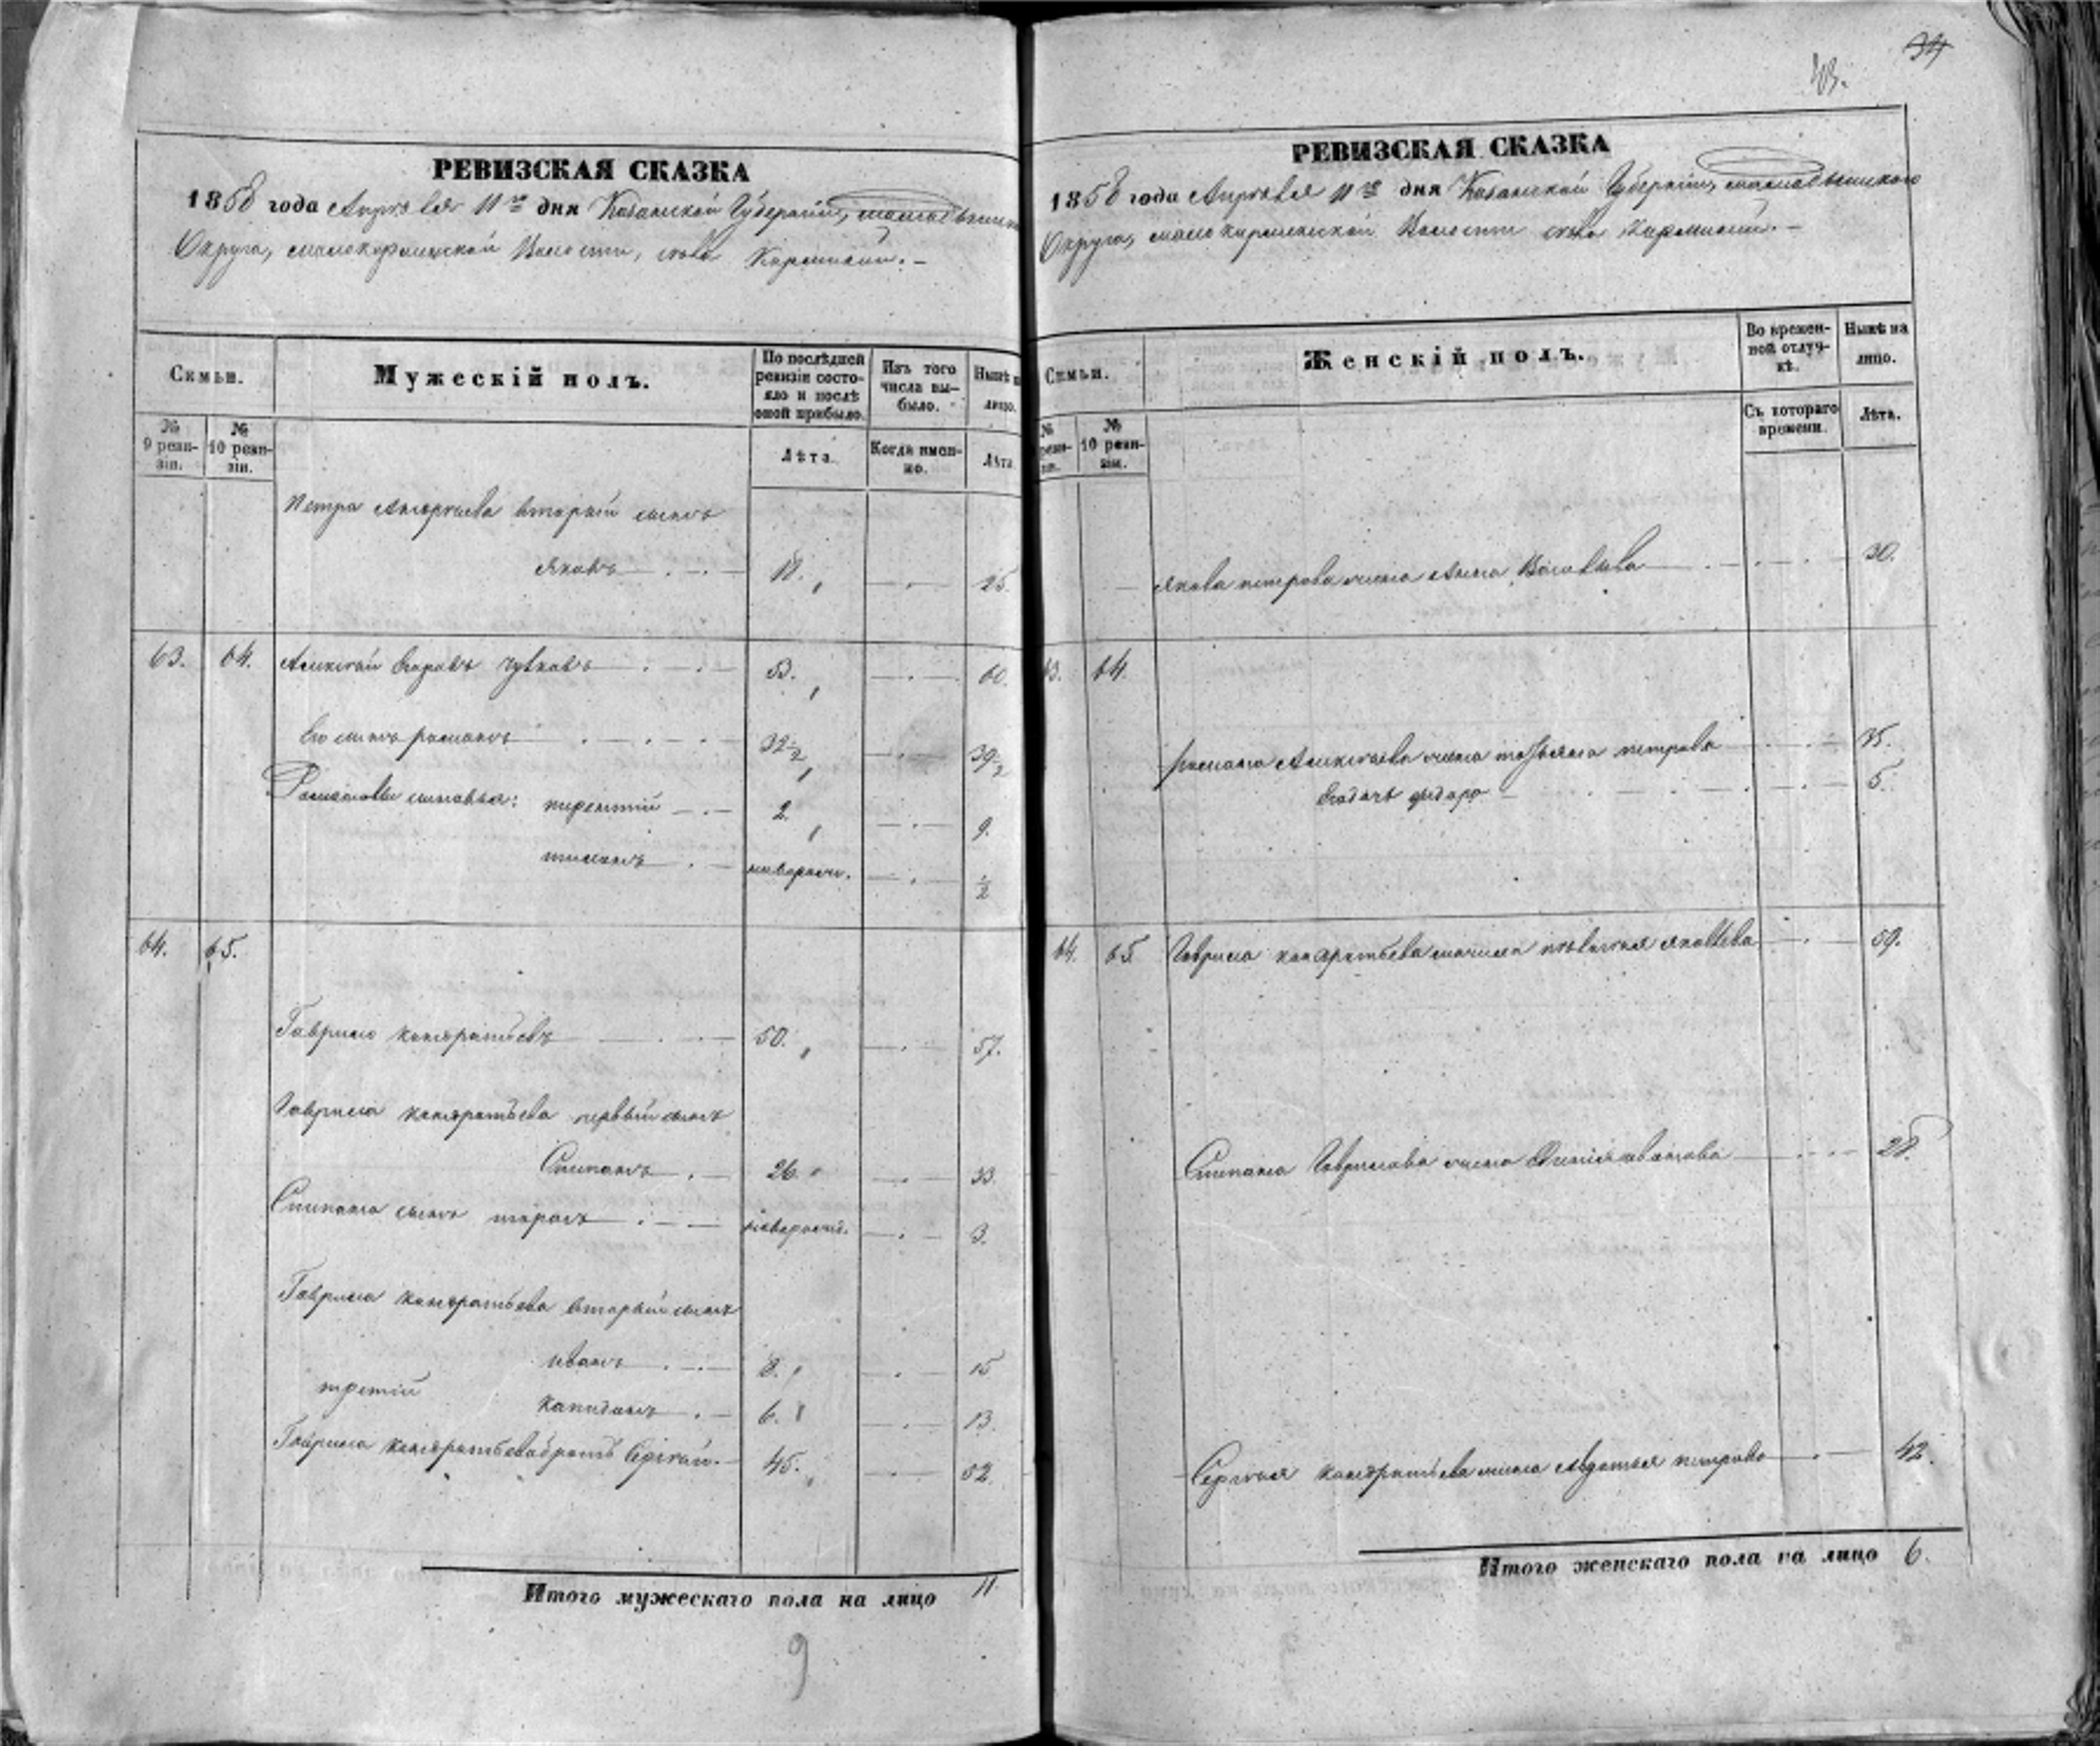 РЕВИЗСКАЯ СКАЗКА
1858 года Апрѣля 11го дня Казанской Губерніи,
Округа, Волости, села
Семьи.
Мужескій полъ.
По послѣдней ревизіи состояло и послѣ оной прибыло.
Изъ того числа выбыло.
Нынѣ на лицо.
№ 9 ревизіи.
№ 10 ревизіи.
Лѣта.
Когда именно.
Лѣта
Петра второй сынъ
Яковъ 18. 25.
63. 64. Алексѣй 53. 60.
Его сынъ Романъ 32½ 39½
Романовы сыновья: терентій 2. 9.
новорожд. ½
64. 65.
Гаврило Кондратьевъ 50. 57.
Гаврила Кондратьева первый сынъ
Степанъ 26. 33.
Степана сынъ тарасъ новорожд. 3.
Гаврила Кондратьева вторый сынъ
иванъ 8. 15
третій 6. 13.
Гаврила Кондратьева братъ Сергѣй. 45. 52.
Итого мужескаго пола на лицо 11.
9
34
43.
РЕВИЗСКАЯ СКАЗКА
1858 года Апрѣля 11го дня Казанской Губерніи,
Округа, Волости села
Семьи.
Женскій полъ.
Во временной отлучкѣ.
Нынѣ на лицо.
№ ревизіи.
№ 10 ревизіи.
Съ котораго времени.
Лѣта.
Якова петрова жена Анна 30.
63. 64.
Романа Алексѣева жена татьяна петрова 35.
5.
64. 65. Гаврила Кондратьева яковлева 59.
Степана Гаврилова жена 28.
Сергѣя Кондратьева жена Авдотья петрова 42.
Итого женскаго пола на лицо 6.